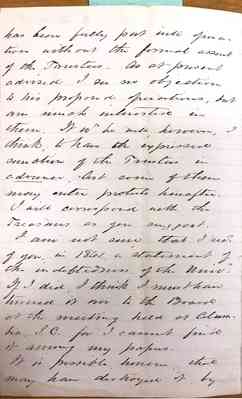 has been fully put into opera-
tion without the formal assent
of the Trustees. As at present
advised I see no objection
to his proposed operations, but
am much interested in
them. It wd be well, however, I
think, to have the expressed
sanction of the Trustees in
advance, lest some of them
may enter protests hereafter.
I will correspond with the
Treasurer as you suggest.
I am not sure that I recd.
of you, in 1861, a statement of
the indebtedness of the Univ.
If I did, I think I must have
turned it over to the Board
at the meeting held at Colum-
bia, S.C. for I cannot find
it among my papers.
It is possible however that
may have destroyed it by